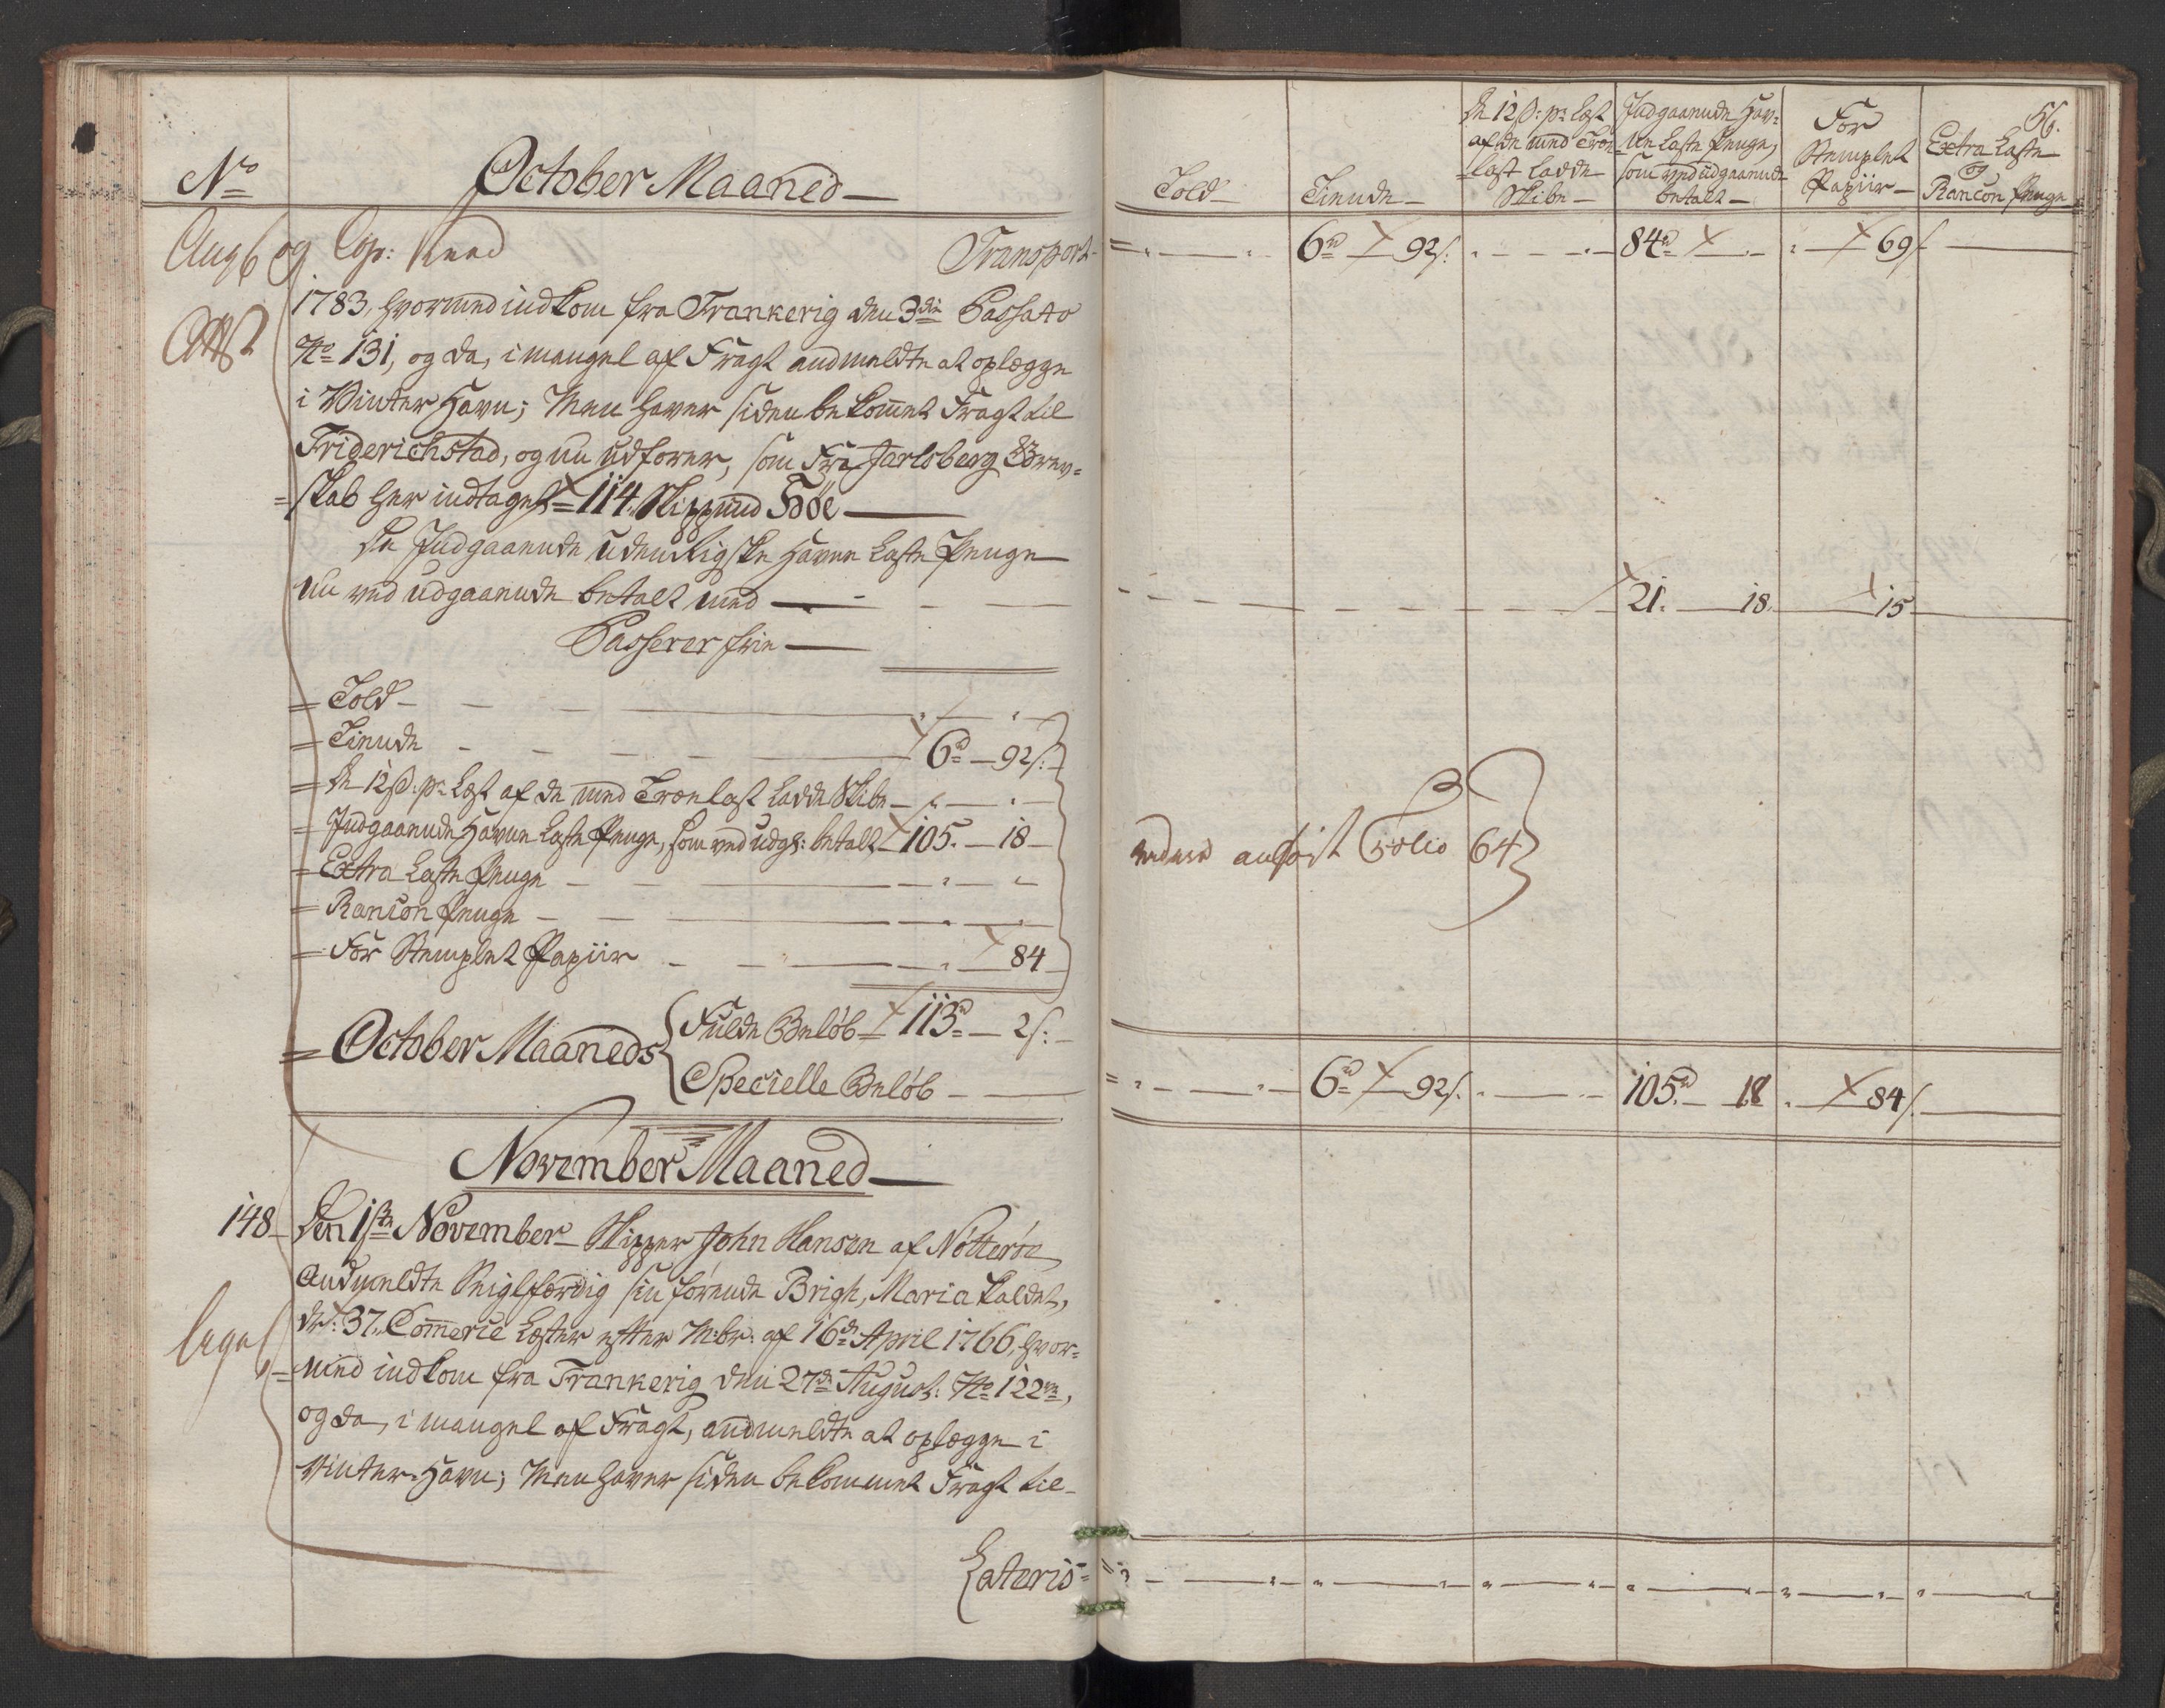 No
October Maaned
Transport
1783, hvormed indkom fra Frankerig den 3die Passato
No 131, og da, i mangel af Fragt andmeldte at oplægge
i Vinter Havn; Men haver siden bekommet Fragt til
Friderichstad, og nu udfører, som fra Jarlsberg Grev=
=skab her indtaget = 114 Skippund Høe
De Indgaaende udenRigske Havne Laste Penge
nu ved udgaaende betalt med
Passerer frie
= Told
= Tiende 6rd 92s:
= De 12s: pr Læst af de med Trælast Ladde Skibe
= Indgaaende Havne Laste Penge, som ved udg: betalt 105. 18
= Extra Laste Penge
= Rancon Penge
= For Stemplet Papiir 84
= October Maaneds
Fulde Beløb 113rd 2s:
Specielle Beløb
November Maaned
148 Den 1ste November Skipper John Hansen af Nötteröe
Andmeldte Seiglfærdig sin førende Brigh, Maria kaldet,
dr: 37. Commerce Læster efter M:br: af 16de April 1766, hvor=
=med indkom fra Frankerig den 27de August: No 122,
og da, i mangel af Fragt, andmeldte at oplægge i
Vinter-Havn; Men haver siden bekommet Fragt til
Lateris
56.
Told
Tiende
De 12s: pr Læst
af de med Træ=
=last Ladde
Skibe
Indgaaende Hav=
=ne Laste Penge,
som ved udgaaende
betalt
For
Stemplet
Papiir
Extra Laste
og
Rancon Penge
6rd 92s: 84rd 69s
21. 18. 15
Folio 64
6rd 92s. 105rd 18 84s.